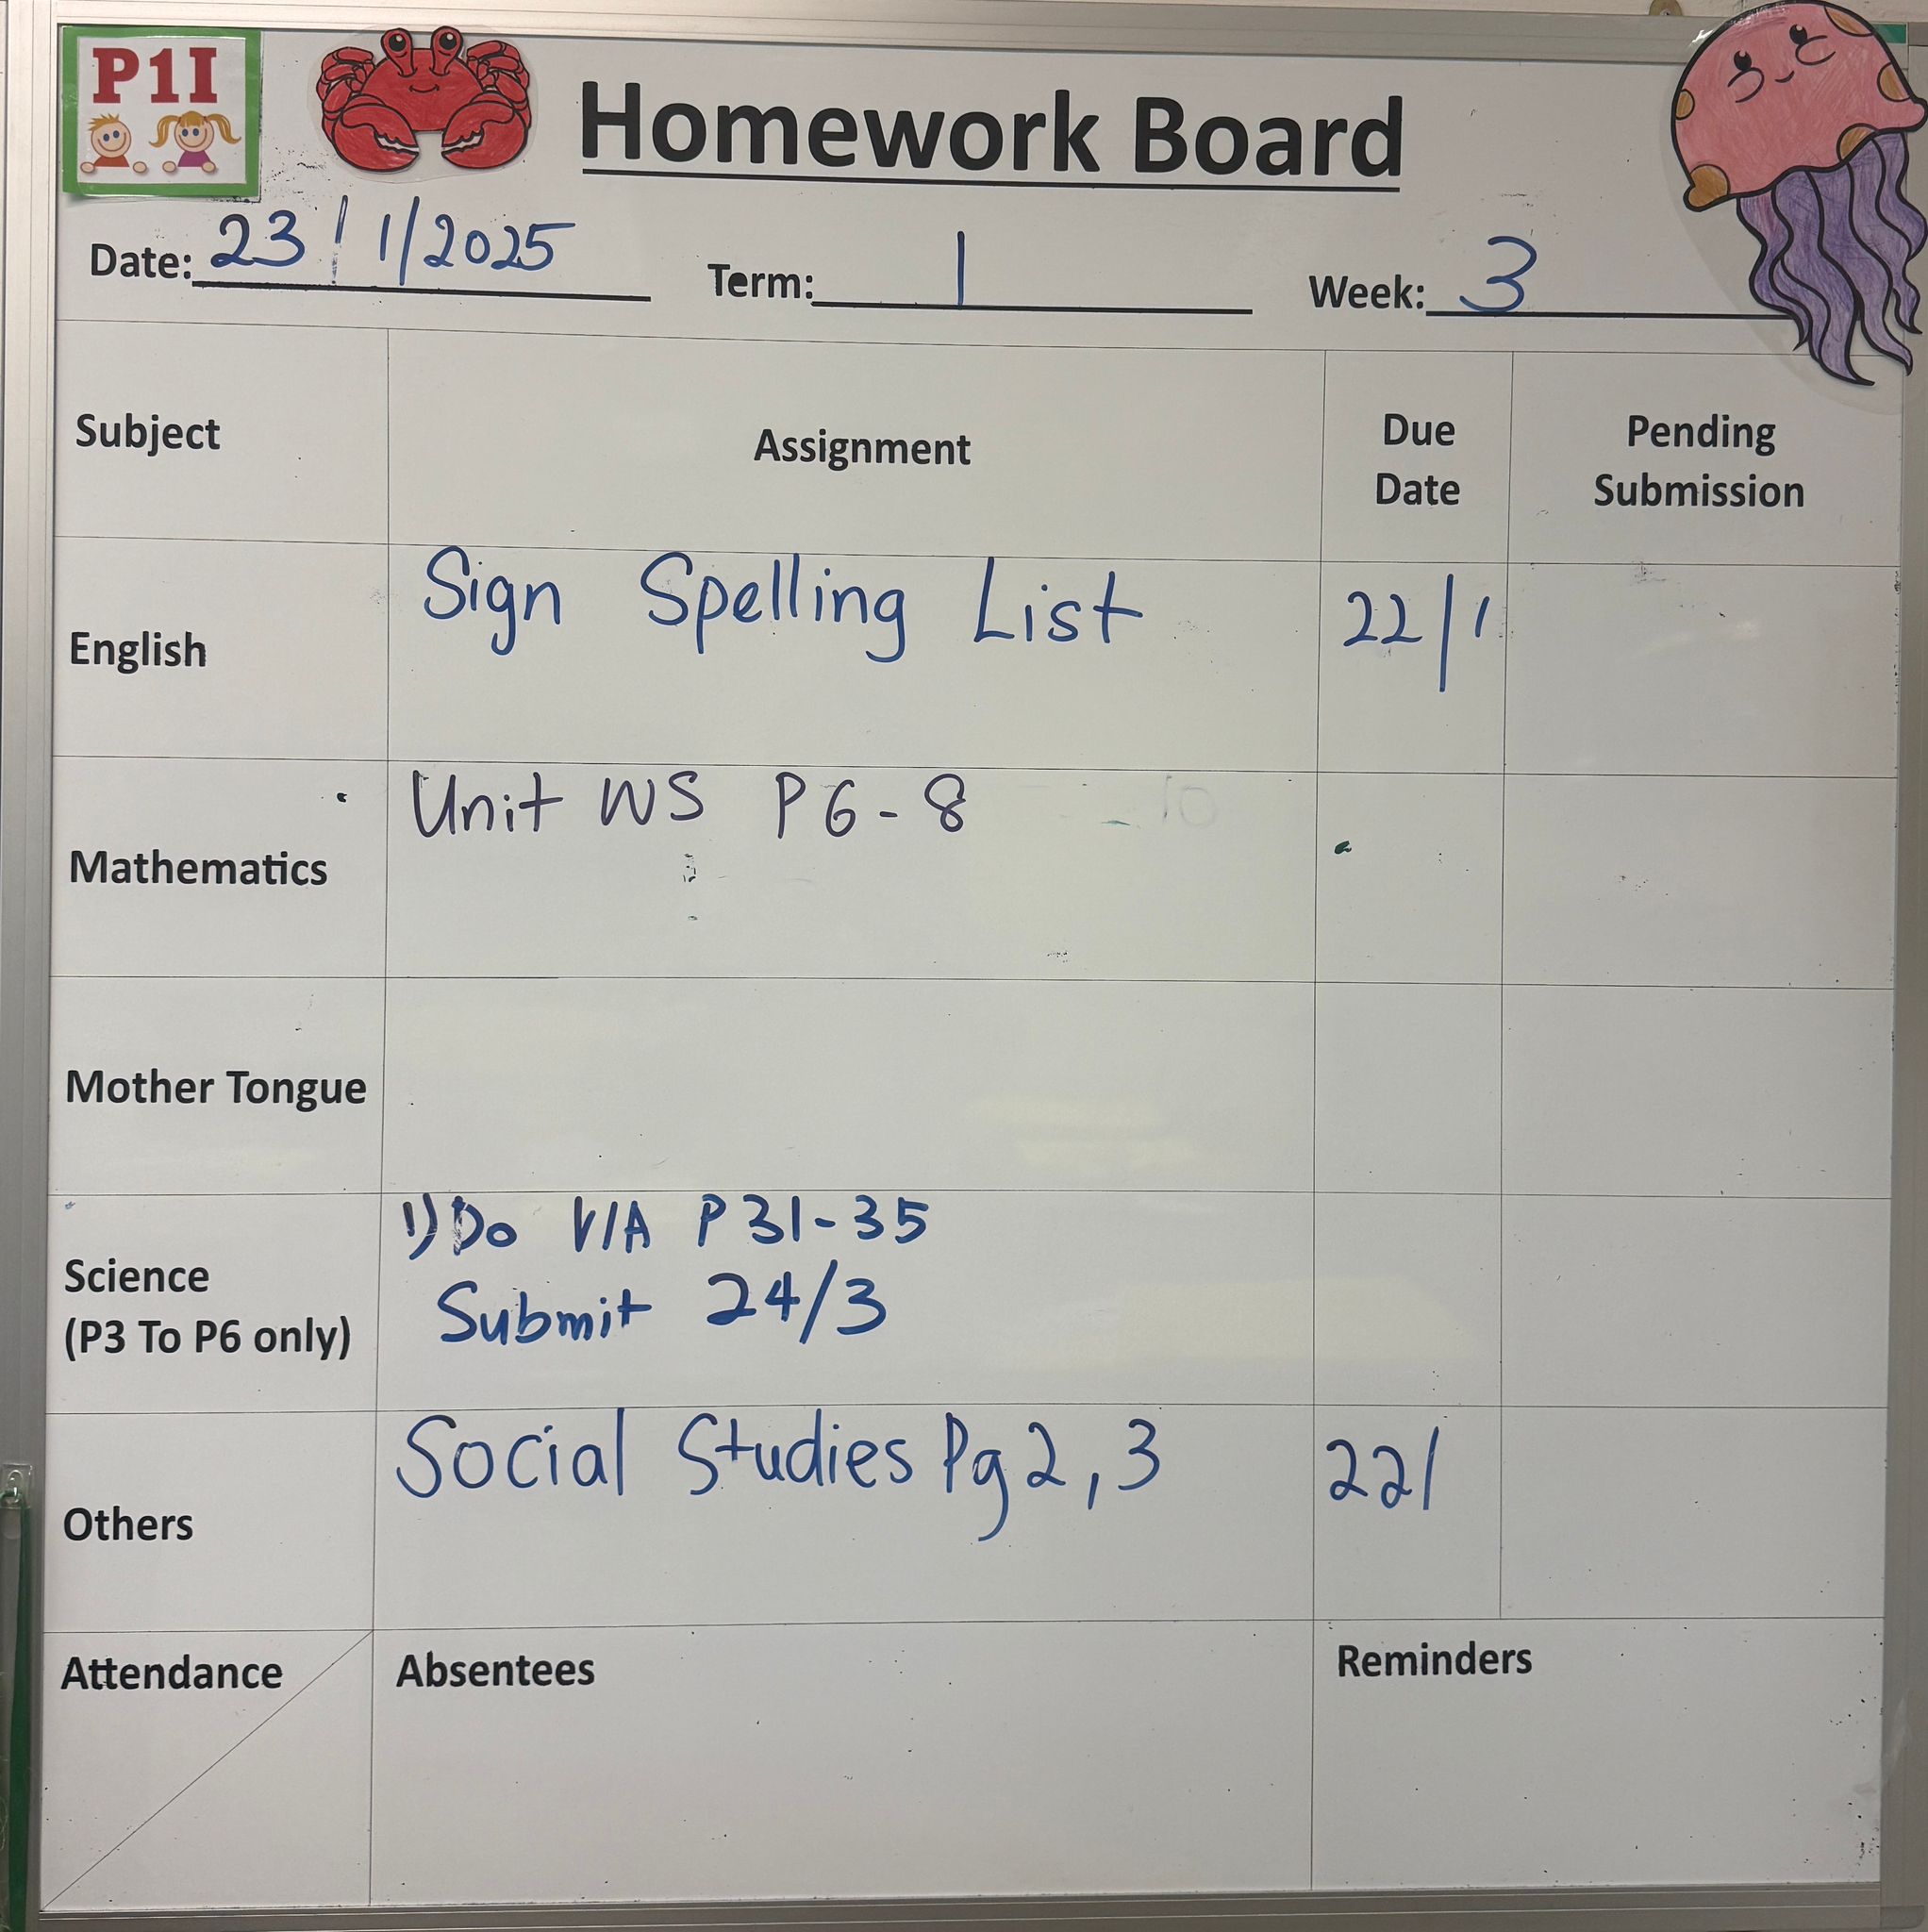 P1I
Homework Board
Date: 23/1/2025 Term: 1 Week: 3
Subject Assignment Due Date Pending Submission
English Sign Spelling List 22/1
Mathematics Unit WS P6-8
Mother Tongue
Science (P3 To P6 only) 1) Do V/A P31-35
Submit 24/3
Others Social Studies Pg 2, 3 22/
Attendance Absentees Reminders